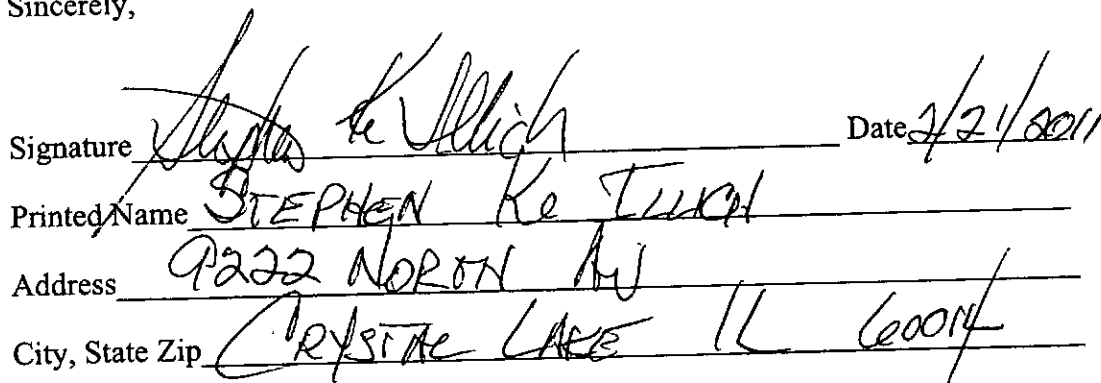 Sincerely,
Signature Date 2/21/2011
Printed Name STEPHEN Ke
Address 9222 NORTH AV
City, State Zip CRYSTAL LAKE IL 60014